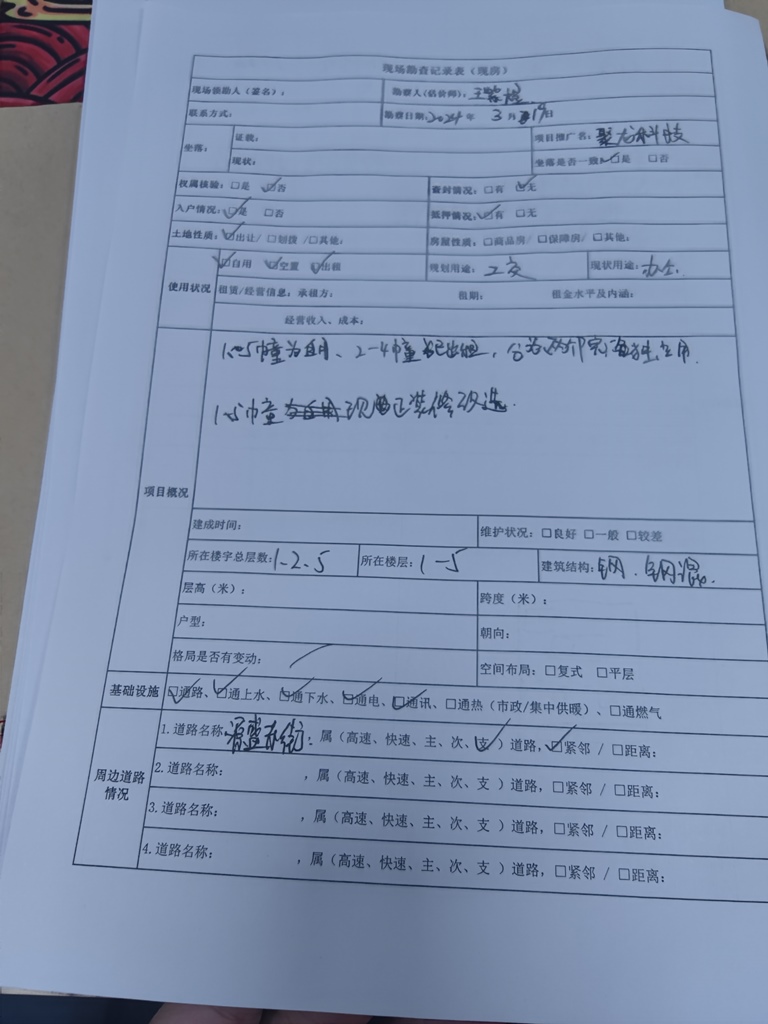 现场勘查记录表（现房）
现场领勘人（签名）： 勘察人（估价师）：
联系方式： 勘察日期：2024年 3月 19日
坐落： 证载： 项目推广名：聚龙科技
现状： 坐落是否一致：☑是 □否
权属核验：□是 ☑否 查封情况：□有 ☑无
入户情况：☑是 □否 抵押情况：☑有 □无
土地性质：☑出让/□划拨/□其他： 房屋性质：□商品房/□保障房/□其他：
使用状况 ☑自用 ☑空置 ☑出租 规划用途：工交 现状用途：办公.
租赁/经营信息：承租方： 租期： 租金水平及内涵：
经营收入、成本：
项目概况
1、5幢为自用、2-4幢已出租，分为两个完 独立 用.
1、5幢 现正装修改造.
建成时间： 维护状况：□良好 □一般 □较差
所在楼宇总层数：1、2、5 所在楼层：1-5 建筑结构：钢、钢混.
层高（米）： 跨度（米）：
户型： 朝向：
格局是否有变动： 空间布局：□复式 □平层
基础设施 ☑通路、☑通上水、☑通下水、☑通电、☑通讯、□通热（市政/集中供暖）、□通燃气
周边道路情况
1.道路名称：源盛东街，属（高速、快速、主、次、支✓）道路，☑紧邻 / □距离：
2.道路名称： ，属（高速、快速、主、次、支 ）道路，□紧邻 / □距离：
3.道路名称： ，属（高速、快速、主、次、支 ）道路，□紧邻 / □距离：
4.道路名称： ，属（高速、快速、主、次、支 ）道路，□紧邻 / □距离：